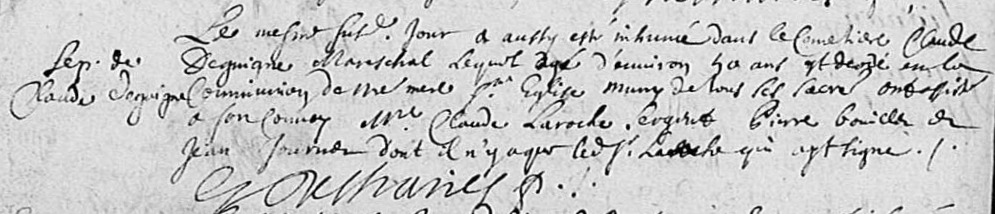 Le mesme susd. Jour a aussy esté inhumé dans le Cemetiere Claude
Sep. de
Deguigne Mareschal Lequel agé d'environ 50 ans est decedé en la
Claude Deguigne
Communion de nre mere Ste Eglise muny de tous ses sacre ont assisté
a son Convoy Mre Claude Laroche sergent Pierre de
Jean fournier dont il n'y a que led Sr. Laroche qui ayt signe ./.